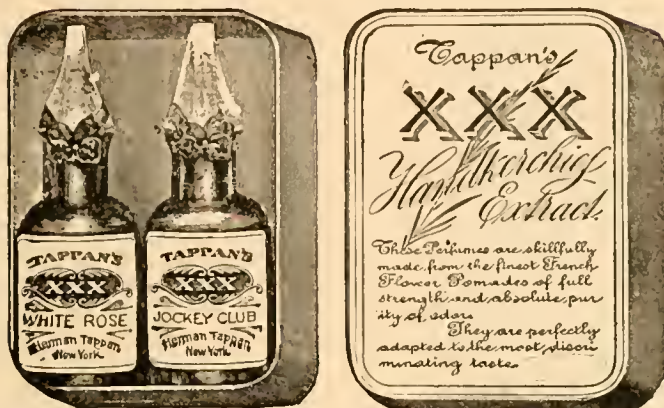 TAPPAN'S
XXX
WHITE ROSE
Herman Tappan
New York.
TAPPAN'S
XXX
JOCKEY CLUB
Herman Tappan
New York.
Tappan's
XXX
Handkerchief
Extract.
These Perfumes are skillfully
made from the finest French
Flower Pomades of full
strength and absolute pur
ity of odor.
They are perfectly
adapted to the most discri
minating taste.